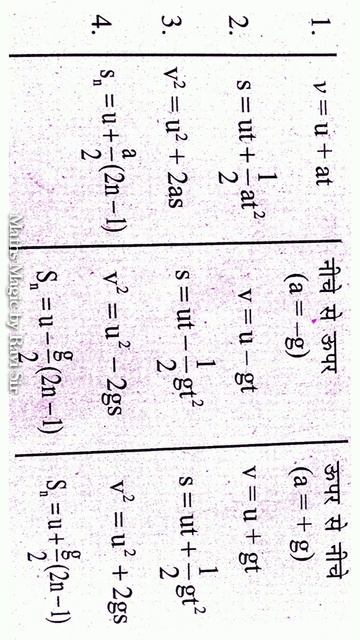 नीचे से ऊपर ऊपर से नीचे
(a = -g) (a = + g)
1. v = u + at v = u - gt v = u + gt
2. s = ut + \frac{1}{2}at² s = ut - \frac{1}{2}gt² s = ut + \frac{1}{2}gt²
3. v² = u² + 2as v² = u² - 2gs v² = u² + 2gs
4. sₙ = u + \frac{a}{2}(2n-1) Sₙ = u - \frac{g}{2}(2n-1) Sₙ = u + \frac{g}{2}(2n-1)
Maths Magic by Ravi sir